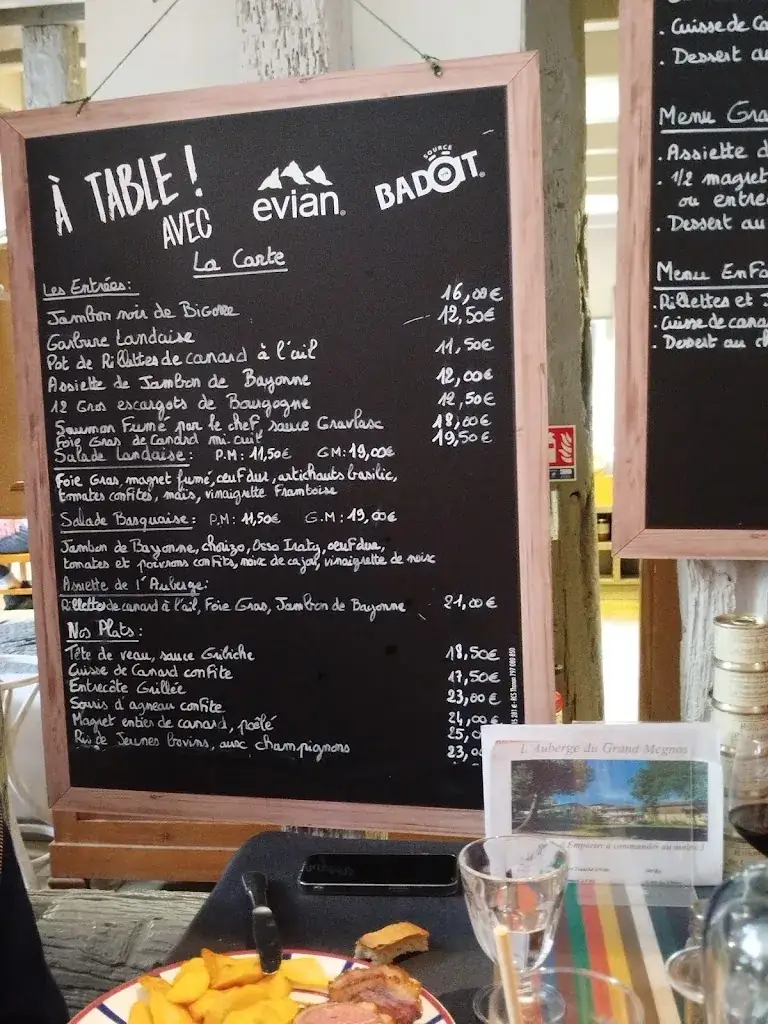 À TABLE !
AVEC
evian.
SOURCE
BADOIT.
La Carte
Les Entrées:
Jambon noir de Bigorre 16,00€
Garbure Landaise 12,50€
Pot de Rillettes de canard à l'ail 11,50€
Assiette de Jambon de Bayonne 12,00€
12 Gros escargots de Bourgogne 12,50€
Saumon Fumé par le chef, sauce Gravlasc 18,00€
Foie Gras de Canard mi cuit 19,50€
Salade Landaise: P.M: 11,50€ G.M: 19,00€
Foie Gras, magret fumé, œuf dur, artichauts basilic,
tomates confites, maïs, vinaigrette Framboise
Salade Basquaise: P.M: 11,50€ G.M: 19,00€
Jambon de Bayonne, chorizo, Osso Iraty, œuf dur,
tomates et poivrons confits, noix de cajou, vinaigrette de noix
Assiette de l'Auberge:
Rillettes de canard à l'ail, Foie Gras, Jambon de Bayonne 21,00€
Nos Plats:
Tête de veau, sauce Gribiche 18,50€
Cuisse de Canard confite 17,50€
Entrecôte Grillée 23,00€
Souris d'agneau confite 24,00€
Magret entier de canard, poêlé 25,0
Ris de Jeunes bovins, aux champignons 23,0
. Cuisse de Ca
. Dessert au
Menu Gra
. Assiette d
. 1/2 magret
ou entre
. Dessert au
Menu Enfa
. Rillettes et J
. Cuisse de cana
. Dessert au c
L'Auberge du Grand Megnos
Emporter à commander au moins 1